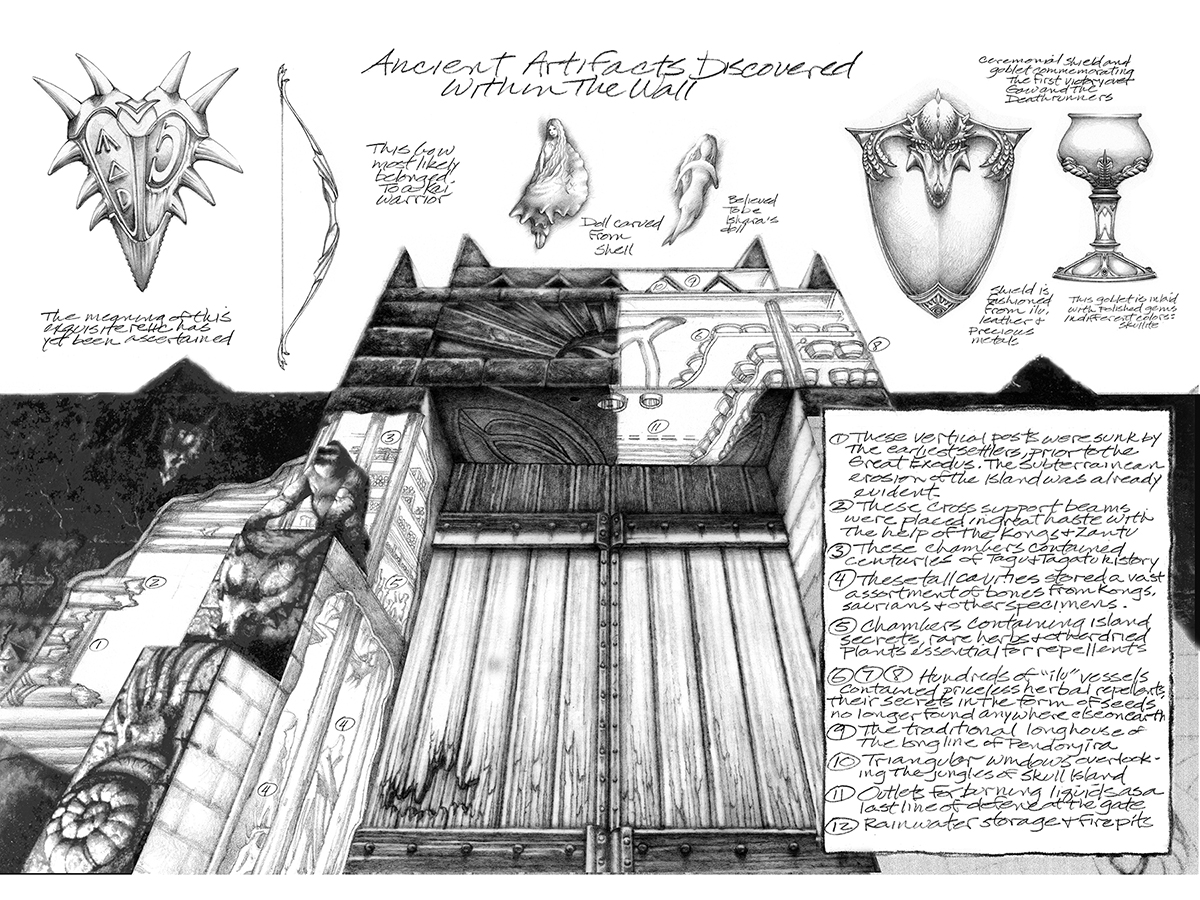 Ancient Artifacts Discovered
Within The Wall
This bow
most likely
belonged
to a Kai
warrior
Doll carved
from
shell
Believed
to be
Ishara's
doll
Ceremonial shield and
goblet commemorating
The first victory over
Gaw and The
Deathrunners
The meaning of this
exquisite relic has
yet been ascertained
Shield is
fashioned
from ilu,
leather &
precious
metals
This goblet is inlaid
with polished gems
in different colors:
skullite
10
9
6
7
8
11
3
2
1
5
4
4
1 These vertical posts were sunk by
the earliest settlers, prior to the
Great Exodus. The subterrainean
erosion of the island was already
evident.
2 These cross support beams
were placed in great haste with
the help of the Kongs & Zantu
3 These chambers contained
centuries of Tagu & Tagatu history
4 These tall cavities stored a vast
assortment of bones from Kongs,
saurians & other specimens.
5 Chambers containing island
secrets, rare herbs & other dried
plants essential for repellents
6 7 8 Hundreds of "ilu" vessels
contained priceless herbal repellents,
their secrets in the form of seeds,
no longer found anywhere else on earth
9 The traditional longhouse of
the long line of Pendonyira
10 Triangular windows overlook-
ing the jungles of Skull Island
11 Outlets for burning liquids as a
last line of defene at the gate
12 Rainwater storage & firepits